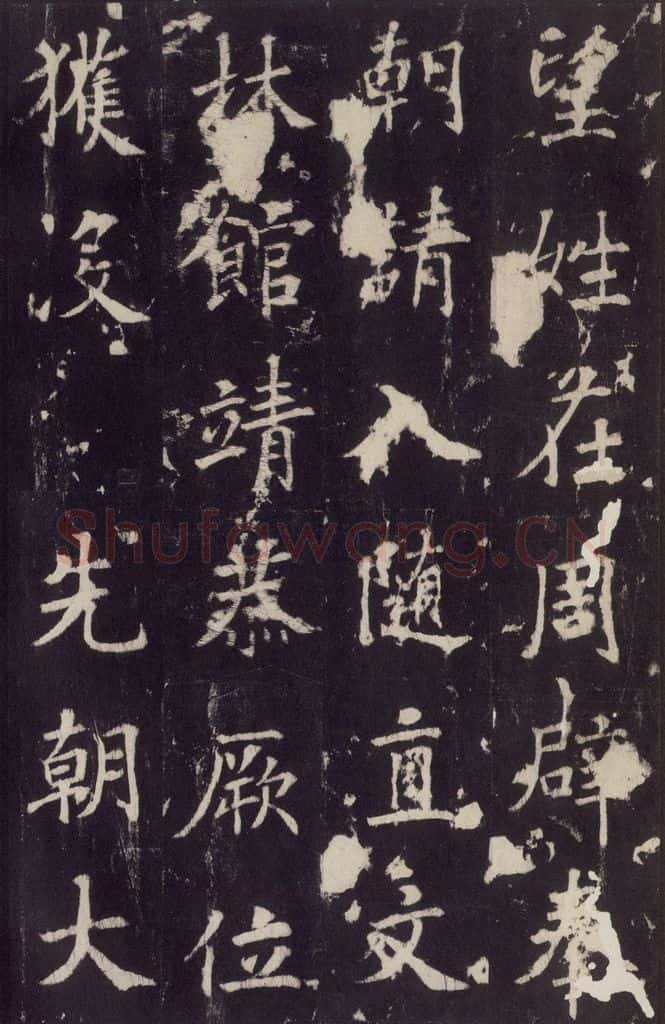 望姓在周辟奉
朝請入隨直文
林館靖恭厥位
獲没先朝大
Shufawang.CN